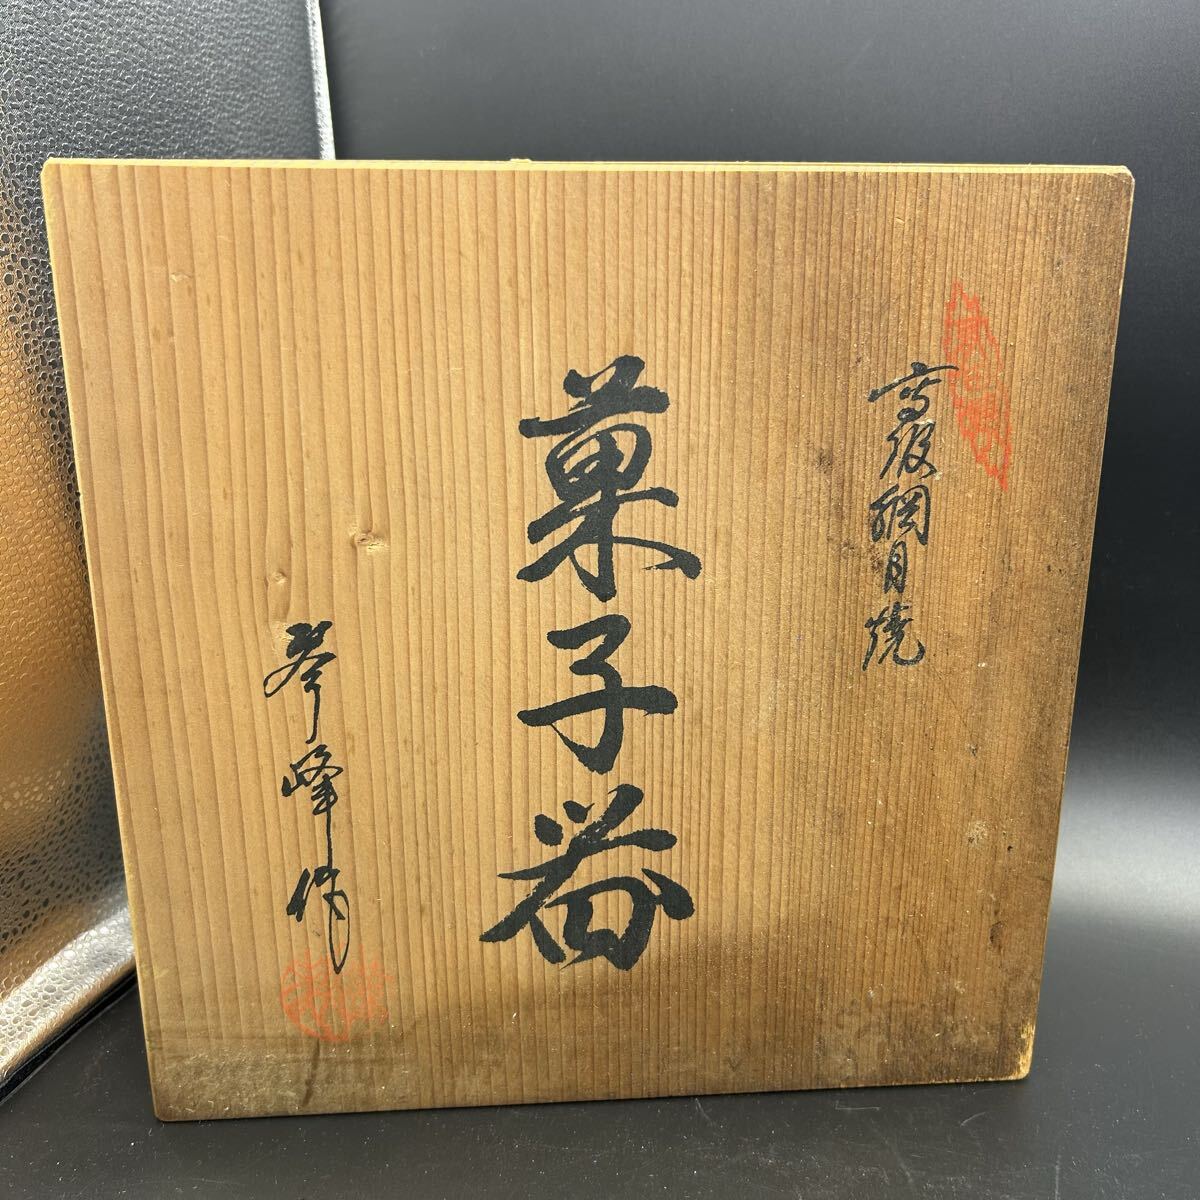 高坂網目焼
菓子器
琴峰作